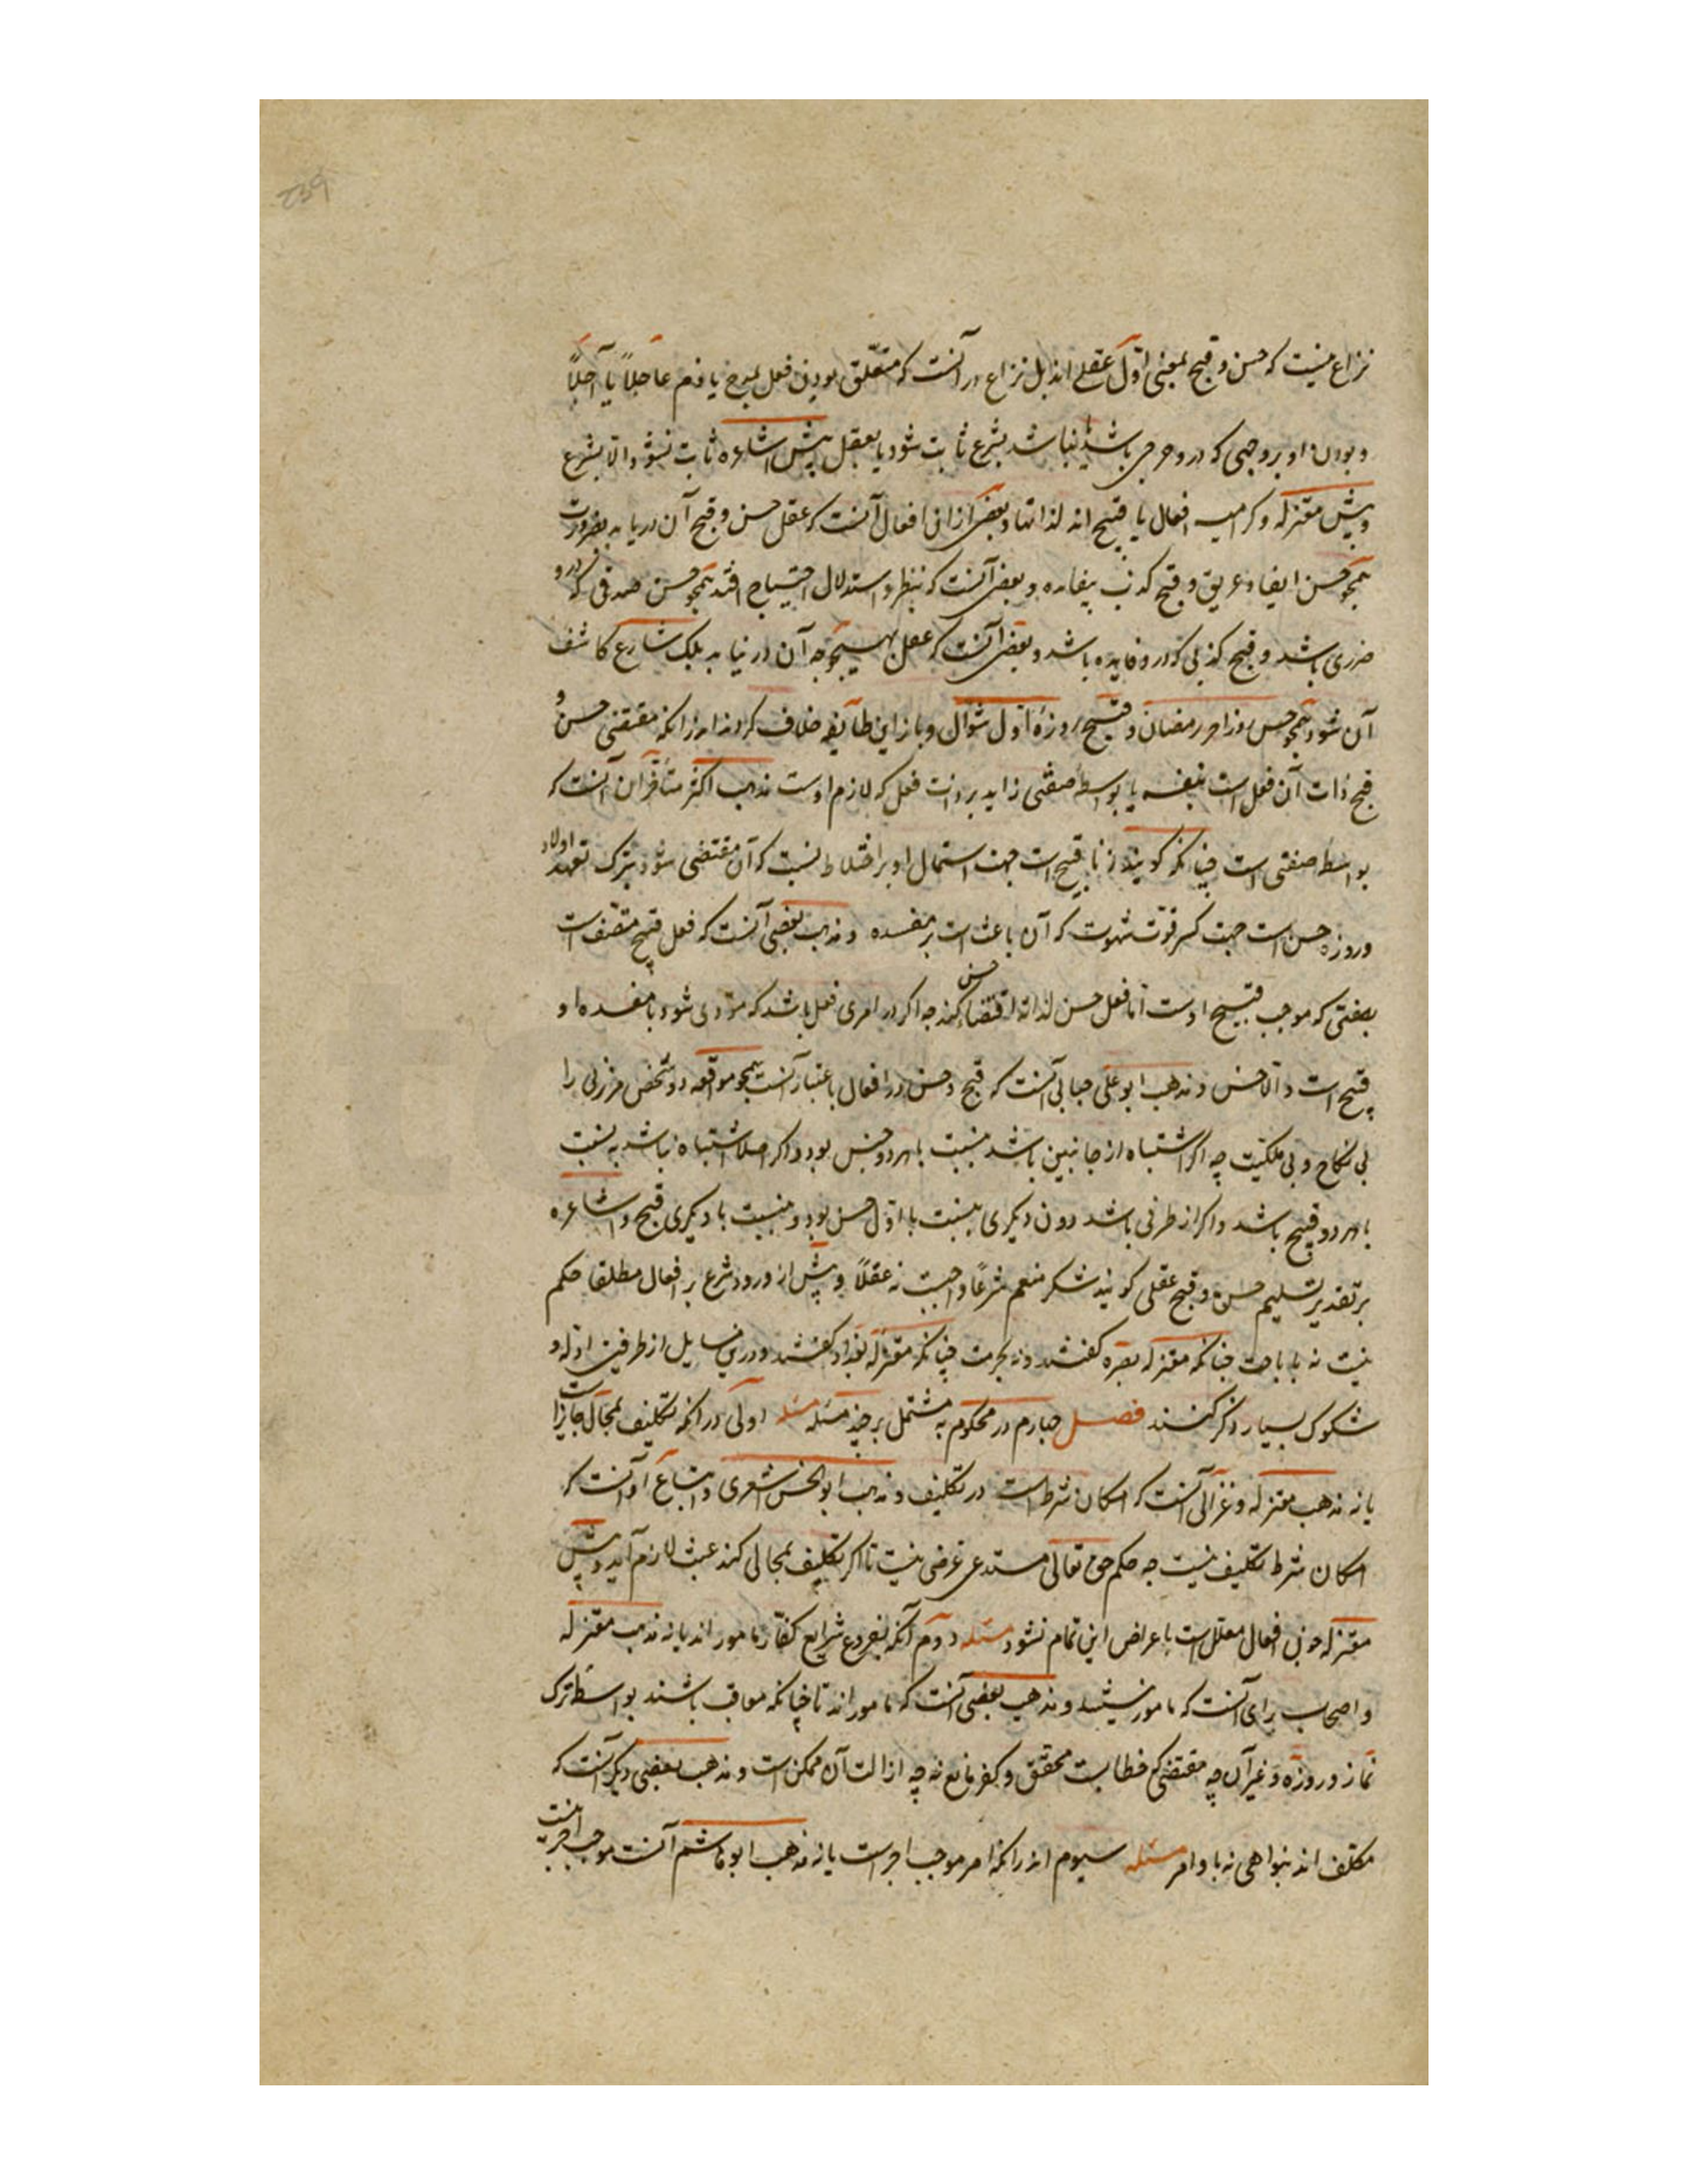 نزاع نیست که حسن و قبیح بمعنی اوّل عقلی اند بل نزاع در آنست که متعلّق بودن فعل بمدح یا ذم عاجلاً یا آجلاً
و بودن او بر وجهی که درو حرجی باشد یا نباشد بشرع ثابت شود یا بعقل پیش اشاعره ثابت نشود الا بشرع
و پیش معتزله و کرامیه افعال یا قبیح اند لذاتها و بعضی ازان افعال آنست که عقل حسن و قبح آن دریابد بضرورت
همچو حسن ایفاء و قبح کذب بیفایده و بعضی آنست که بنظر و استدلال احتیاج افتد همچو حسن صدقی که درو
ضرری باشد و قبح کذبی که درو فایده باشد و بعضی آنست که عقل بهیچوجه آن در نیابد بلک شارع کاشف
آن شود همچو حسن روز آخر رمضان و قبیح روزهٔ اول شوال و باز این طایفه خلاف کردند در آنکه مقتضی حسن و
قبح ذات آن فعل است بنفسه یا بواسطهٔ صفتی زاید بر ذات فعل که لازم اوست مذهب اکثر متأخران آنست که
بواسطهٔ صفتی است چنانکه گویند زنا قبیح است جهت اشتمال او بر اختلاط نسب که آن مقتضی شود بترک تعهد اولاد
و روزه حسن است جهت کسر قوّت شهوت که آن باعث است بر مفسده و مذهب بعضی آنست که فعل قبیح متصف است
بصفتی که موجب قبیح اوست امّا فعل حسن لذاته اقتضاء حسن کند چه اگر در امری فعل باشد که مودی شود با مفسده او
قبیح است و الا حسن و مذهب ابو علی جبایی آنست که قبح و حسن در افعال باعتبار آنست همچو مواقعه دو شخص مر زنی را
بی نکاح و بی ملکیت چه اگر اشتباه از جانبین باشد بنسبت با هر دو حسن بود و اگر اصلا اشتباه نباشد بنسبت
با هر دو قبیح باشد و اگر از طرفی باشد دون دیگری بنسبت با اوّل حسن بود و بنسبت با دیگری قبیح و اشاعره
بر تقدیر تسلیم حسن و قبح عقلی گویند شکر منعم شرعاً واجبست نه عقلاً و پیش از ورود شرع بر افعال مطلقا حکم
نیست نه باباحت چنانکه معتزله بصره گفتند و نه بحرمت چنانکه معتزلهٔ بغداد گفتند و درین مسایل از طرفین ادله و
شکوک بسیار ذکر کنند فصل چهارم در محکوم به مشتمل بر چند مسئله مسئله اولی در آنکه تکلیف بمحال جایز است
یا نه مذهب معتزله و غزالی آنست که امکان شرط است در تکلیف و مذهب ابو الحسن اشعری و اتباع او آنست که
امکان شرط تکلیف نیست چه حکم حق تعالی مستدعی غرضی نیست تا اگر تکلیف بمحالی کند عبث لازم آید و پیش
معتزله چون افعال معلل است باعراض این تمام نشود مسئله دوم آنکه بفروع شرایع کفّار مامور اند یا نه مذهب معتزله
و اصحاب رای آنست که مامور نیستند و مذهب بعضی آنست که مامور اند تا چنانکه معاقب باشند بواسطهٔ ترک
نماز و روزه و غیر آن چه مقتضی خطابست محقق و کفر مانع نه چه ازالت آن ممکن است و مذهب بعضی دیگر آنست که
مکلف اند بنواهی نه باوامر مسئله سیوم در آنکه امر موجب اجر است یا نه مذهب ابو هاشم آنست موجب اجر نیست